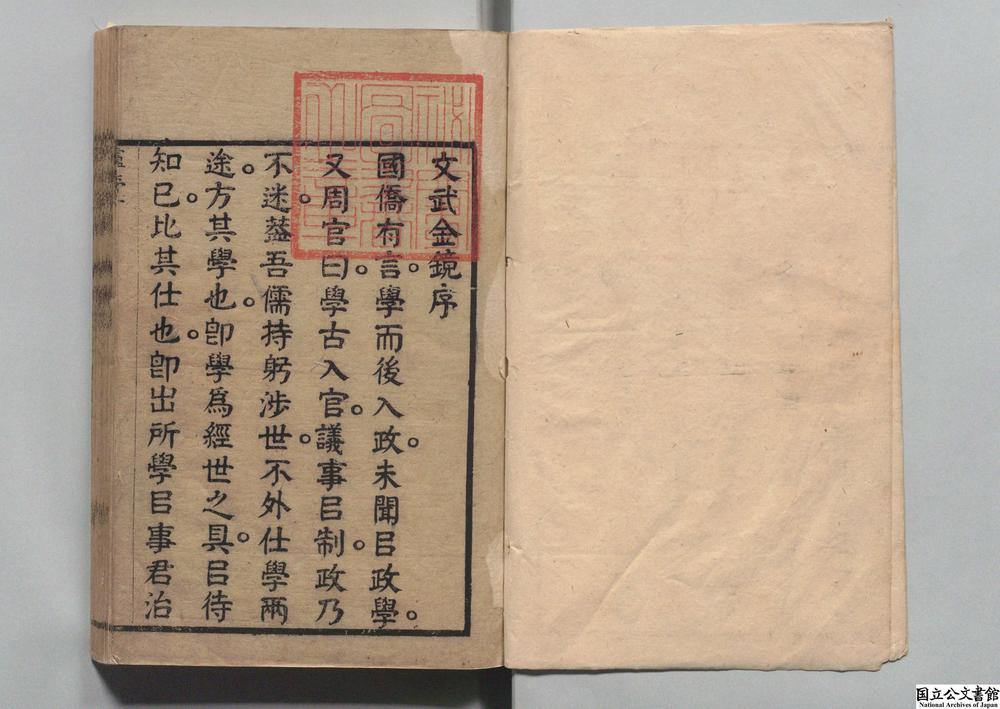 文武金鏡序
國僑有言。學而後入政。未聞㠯政學。
又周官曰。學古入官。議事㠯制。政乃
不迷。葢吾儒持躬涉世。不外仕學兩
途。方其學也。卽學爲經世之具。㠯待
知已。比其仕也。卽出所學㠯事君治
国立公文書館
National Archives of Japan